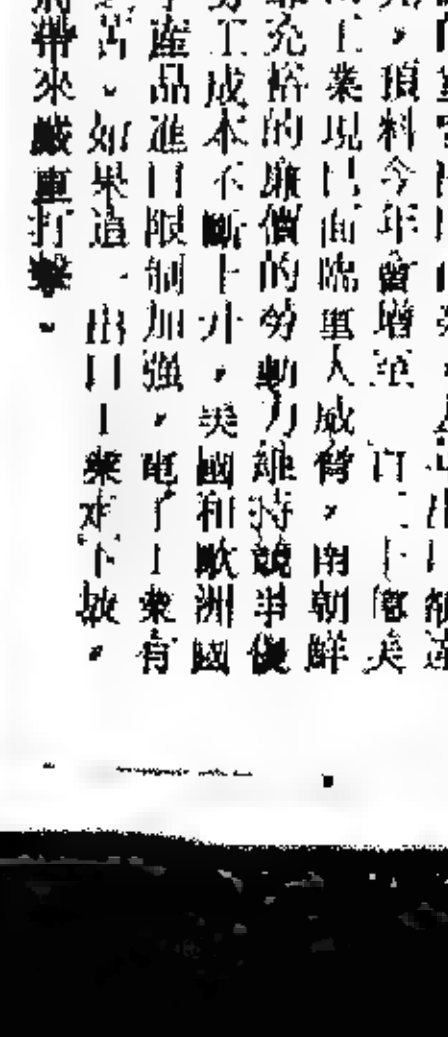 ，預料今年會增至一百二十億美
工業現已面臨重大威脅，南朝鮮
充裕的廉價的勞動力維持競爭優
工成本不斷上升，美國和歐洲國
產品進口限制加强，電子工業有
。如果這一出口工業走下坡，
將帶來嚴重打擊。